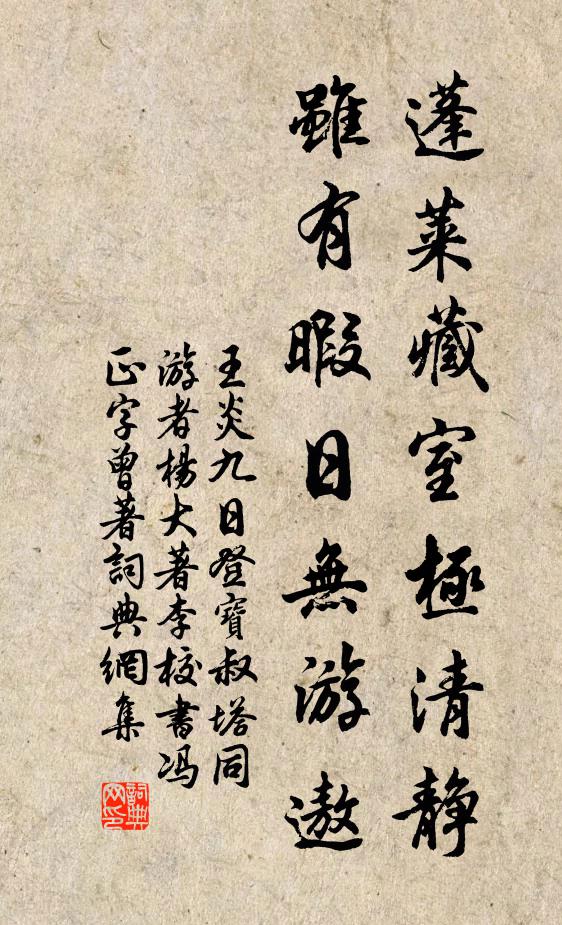 蓬莱藏室極清静
雖有暇日無游遨
王炎九日登寶叔塔同
游者楊大著李校書馮
正字曾著詞典網集
詞典网印